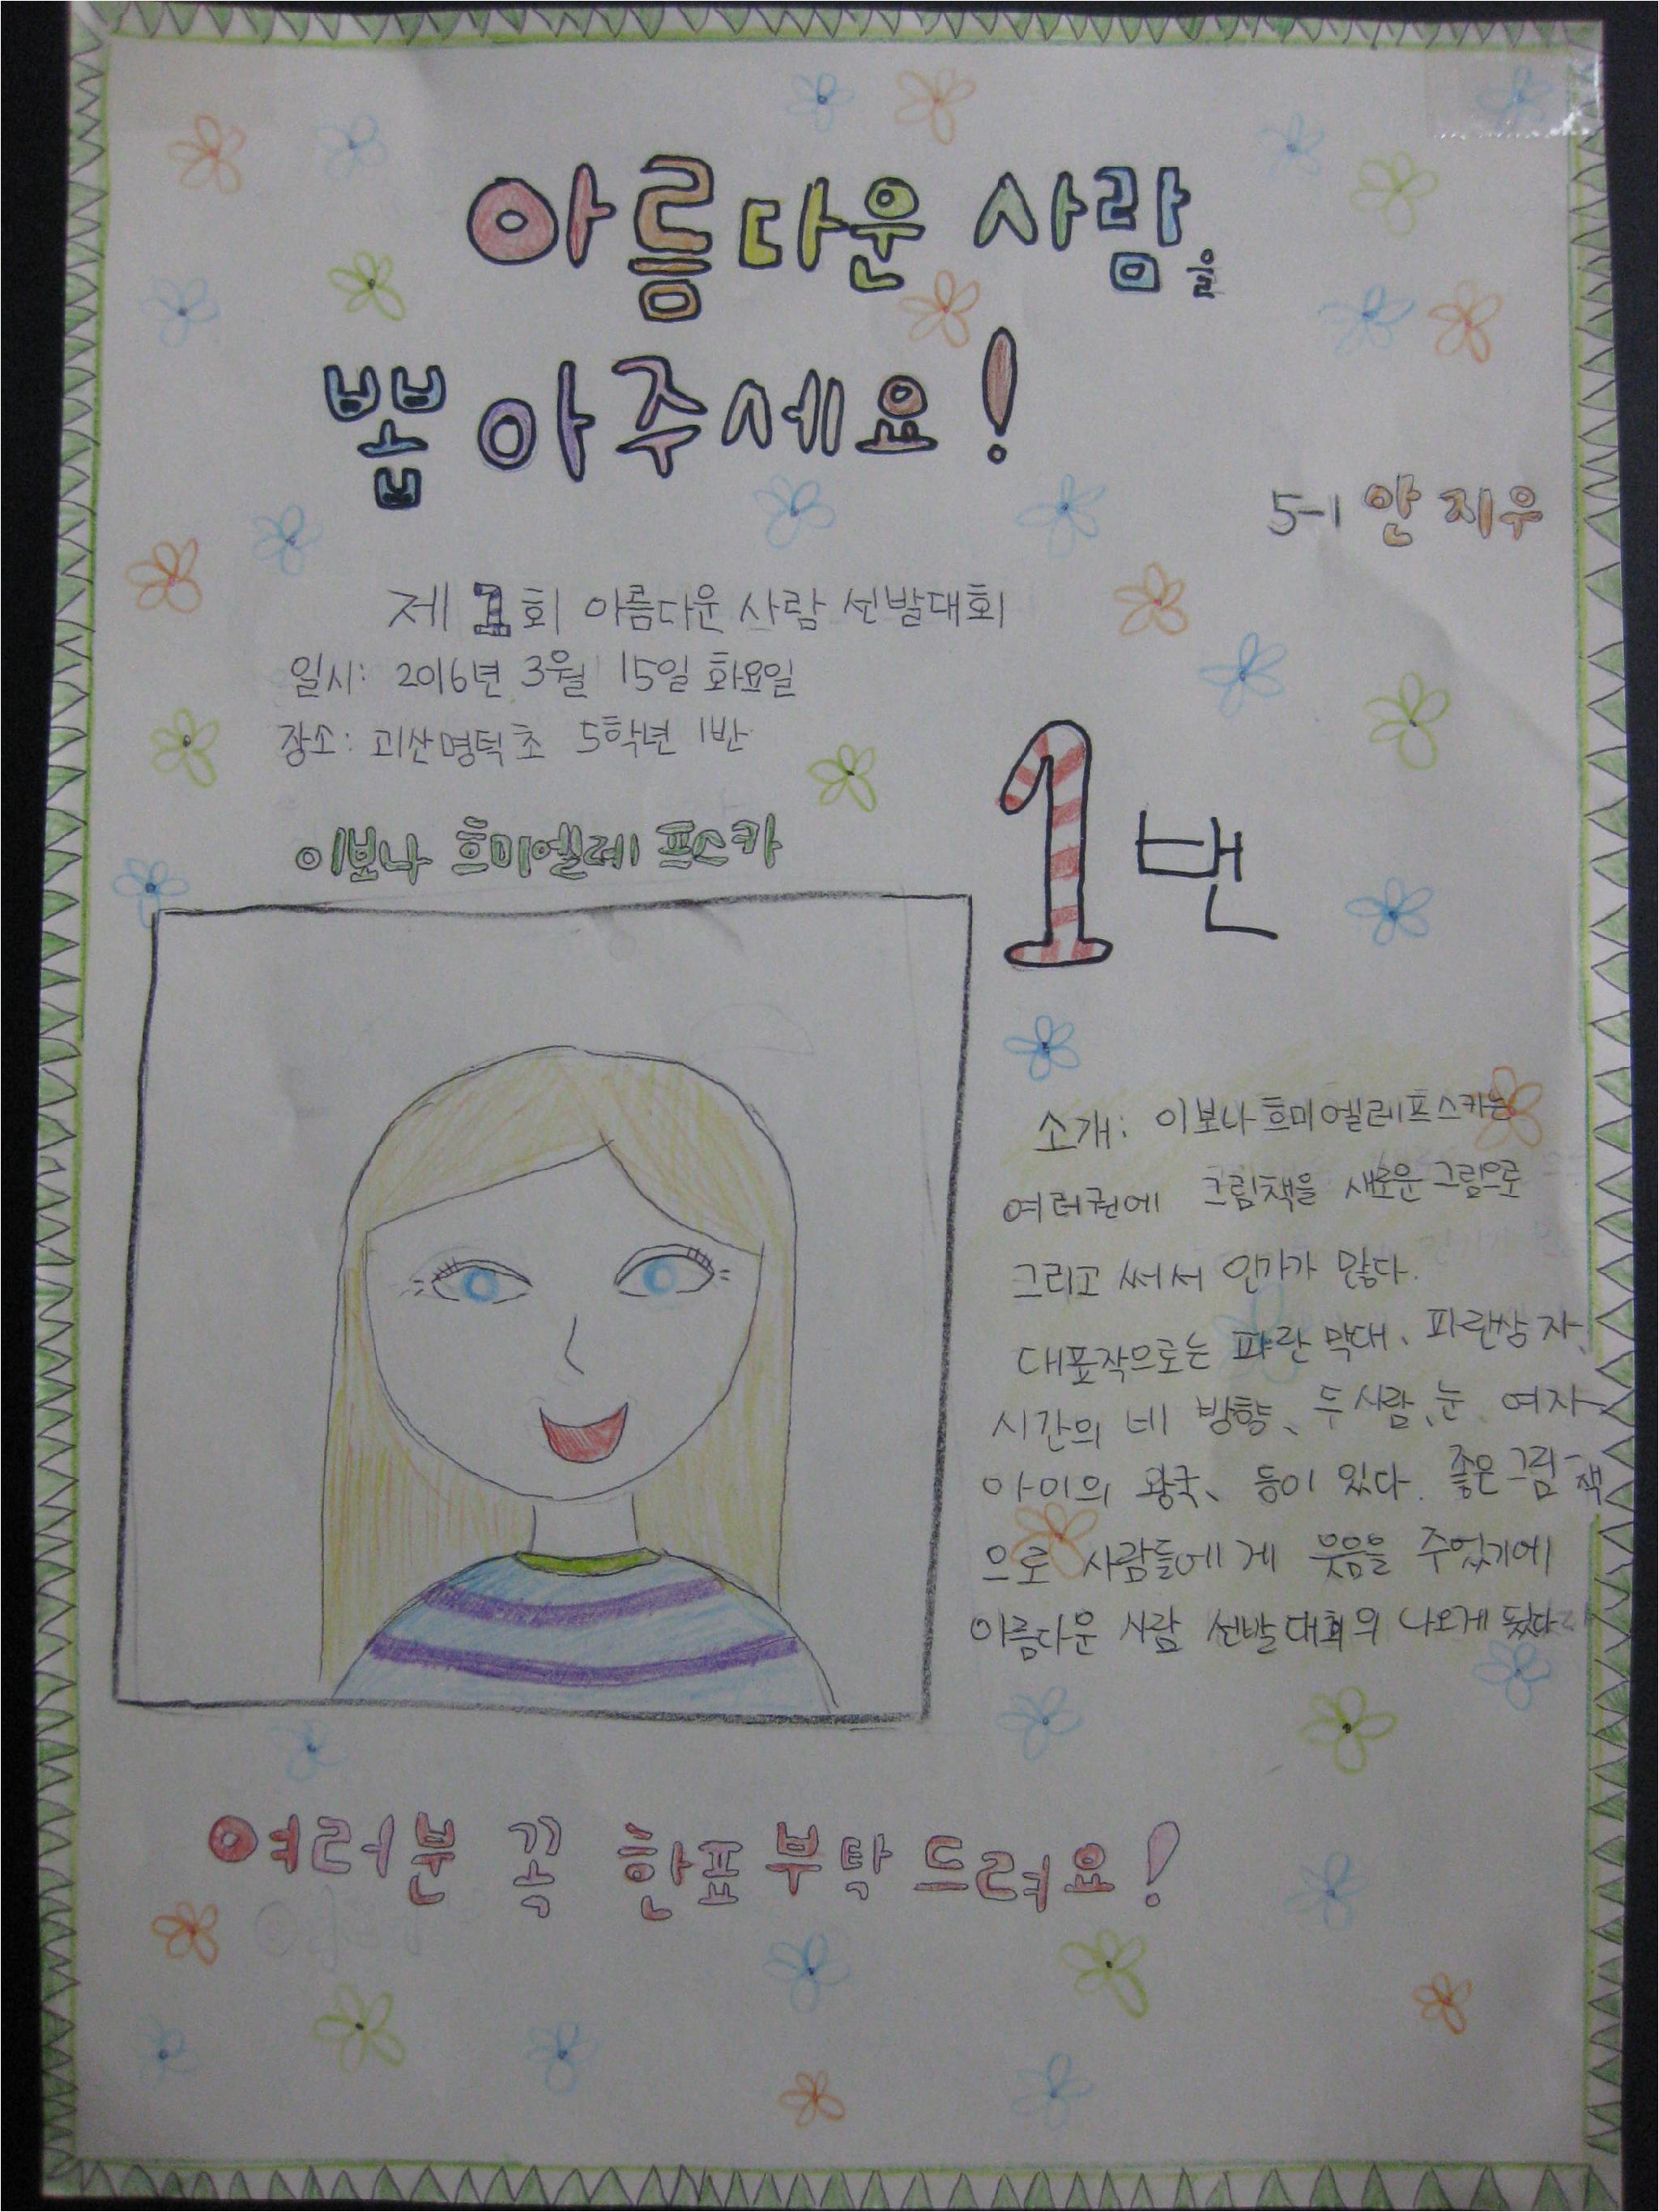 아름다운 사람을
뽑아주세요!
5-1 안지우
제 1회 아름다운 사람 선발대회
일시: 2016년 3월 15일 화요일
장소: 괴산명덕초 5학년 1반
이보나 흐미엘레프스카
1번
소개: 이보나흐미엘레프스카는
여러권에 그림책을 새로운그림으로
그리고 써서 인기가 많다.
대표작으로는 파란 막대、파란상자、
시간의 네 방향、두사람、눈、여자
아이의 왕국、등이 있다. 좋은그림책
으로 사람들에게 웃음을 주었기에
아름다운 사람 선발대회의 나오게 됬다.
여러분 꼭 한표 부탁드려요!